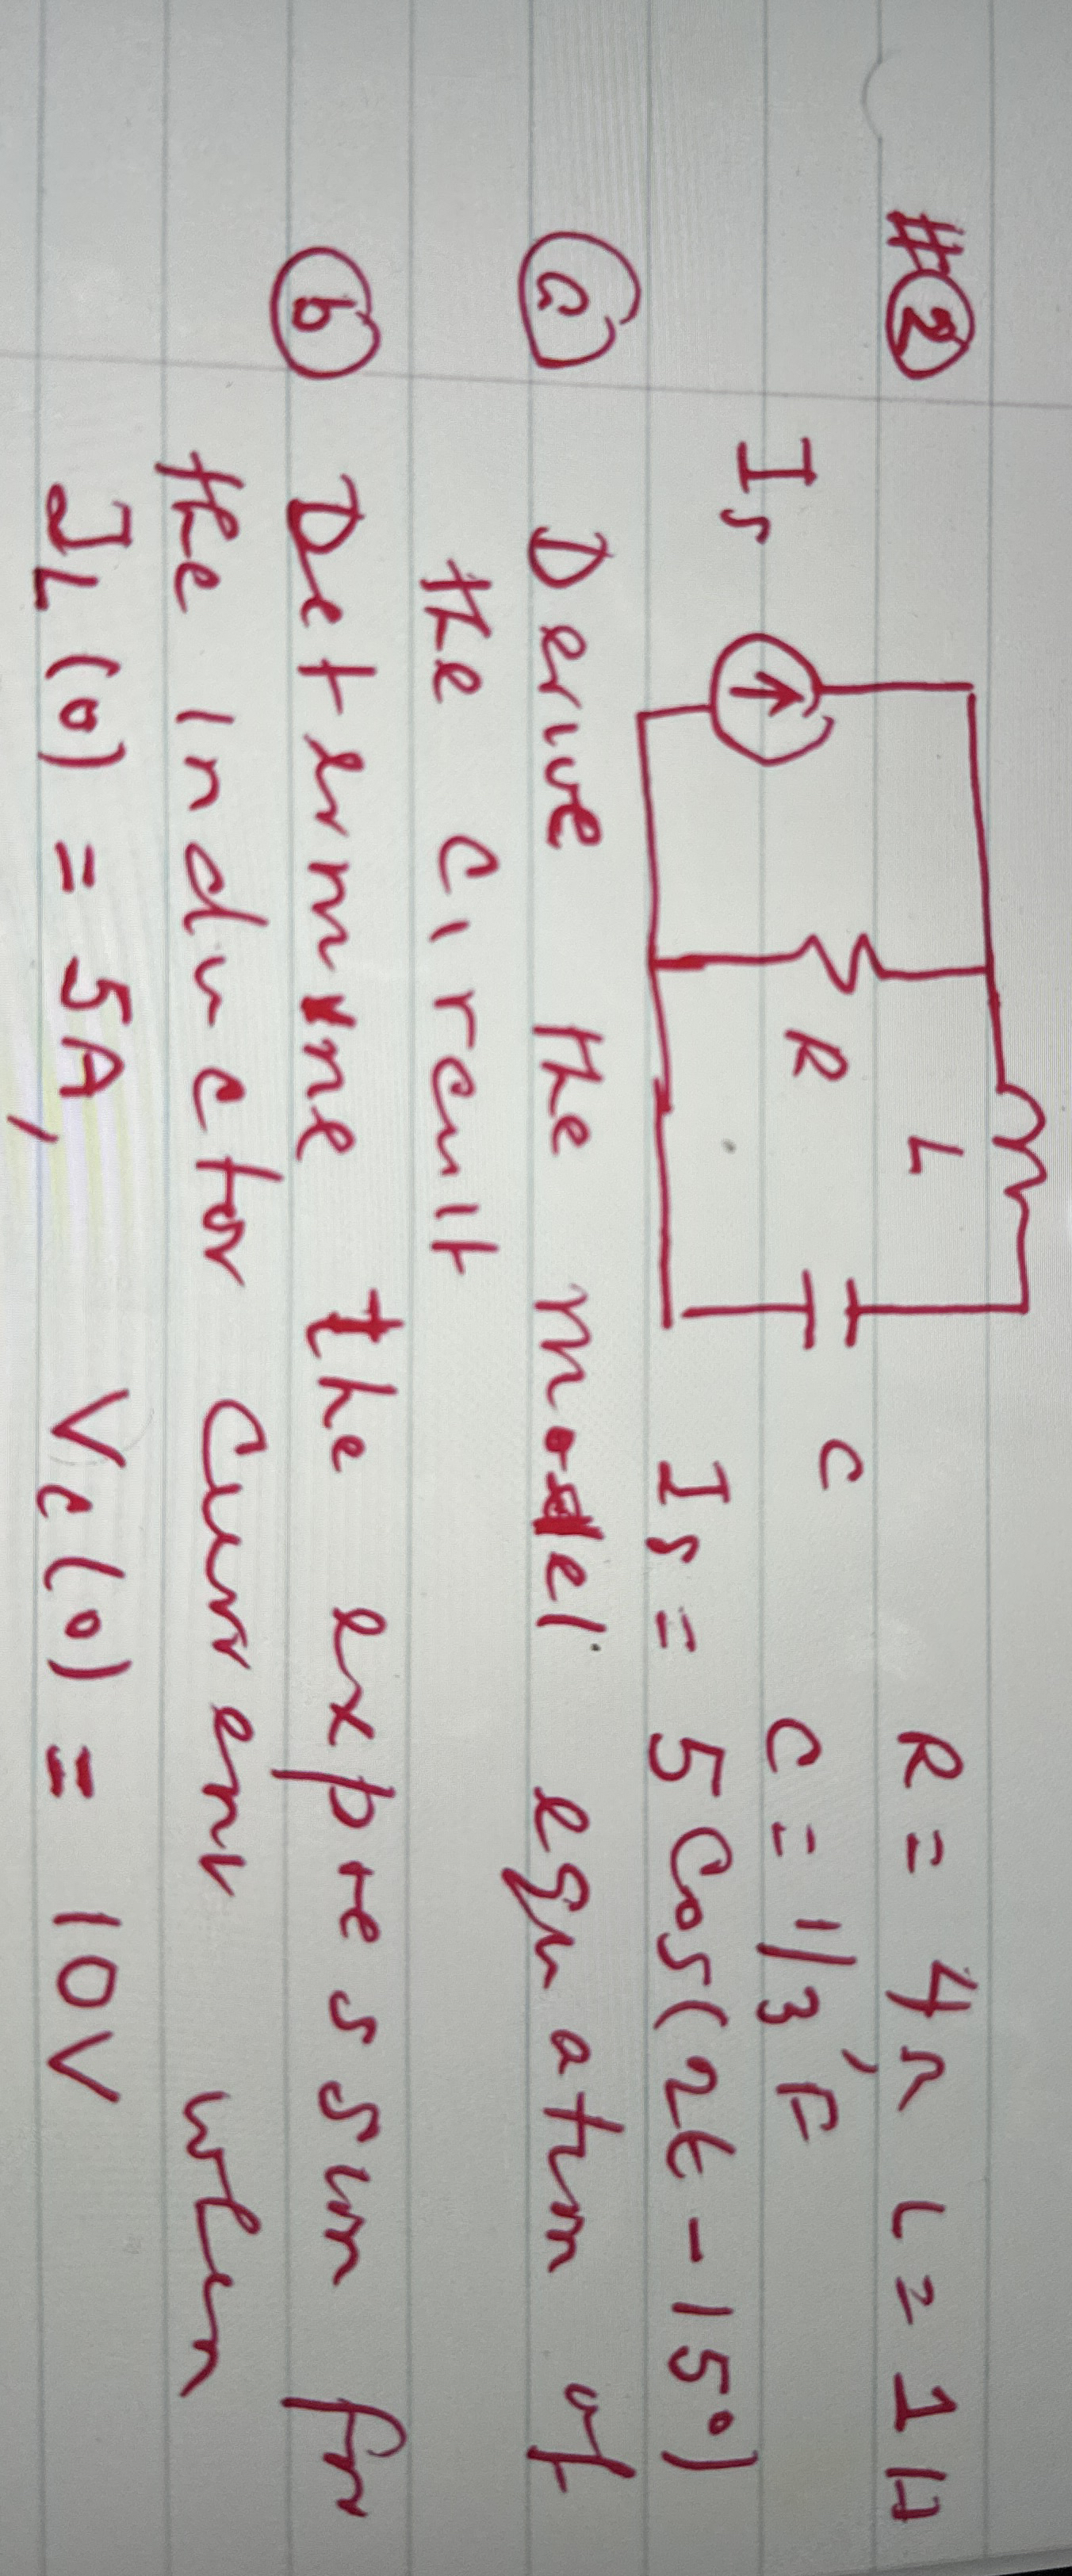 #②
R = 4Ω L = 1H
L
C = 1/3, F
Is
R
C
Is = 5 Cos(2t - 15°)
ⓐ Derive the model equation of
the circuit
ⓑ Determine the expression for
the inductor current when
IL(0) = 5A, Vc(0) = 10V